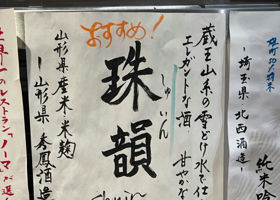 おすすめ!
珠韻
しゅいん
蔵王山系の雪どけ水で仕
エレガントな酒 甘やかな
山形県産米・米麹
山形県 秀鳳酒造
世界一のレストラン「ノーマ」が選
～埼玉県 北西酒造～
純米吟